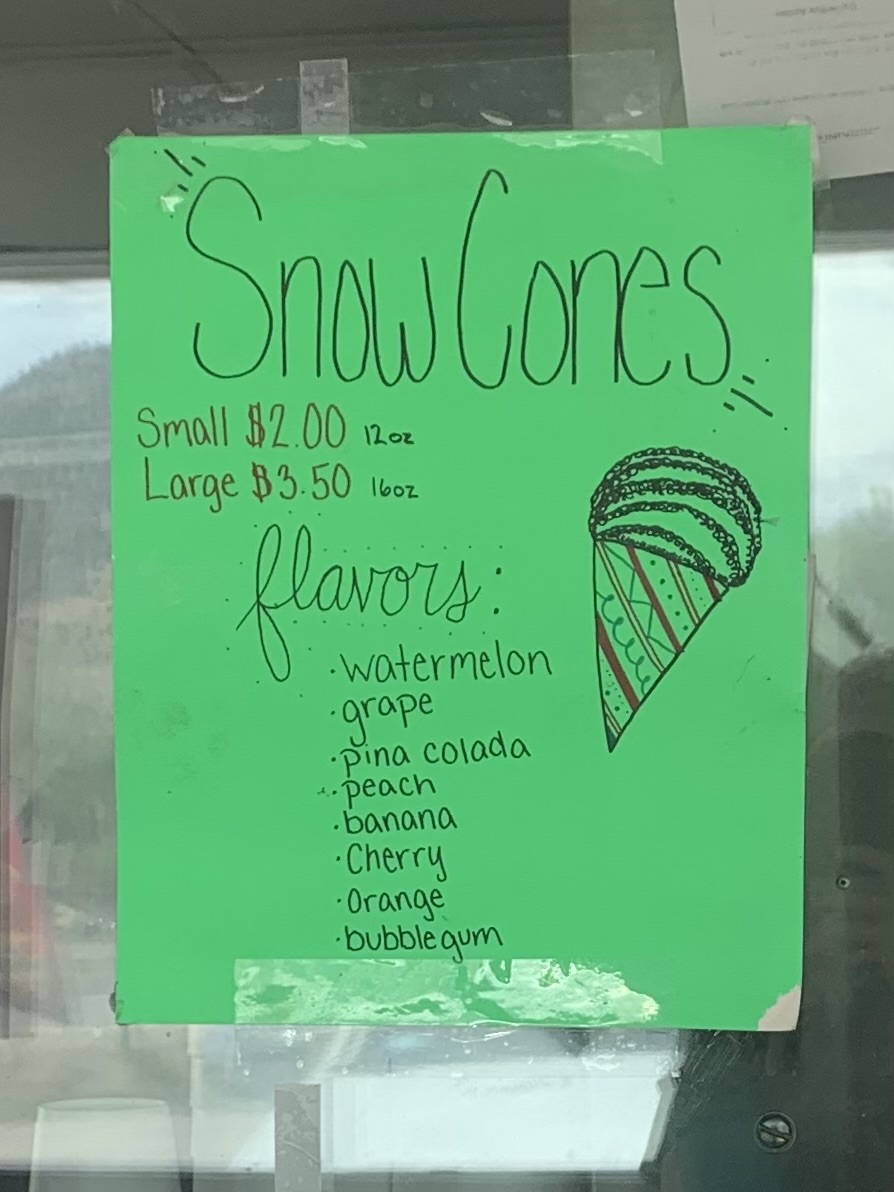 Snow Cones
Small $2.00 12oz
Large $3.50 16oz
flavors:
·watermelon
·grape
·pina colada
·peach
·banana
·Cherry
·Orange
·bubblegum